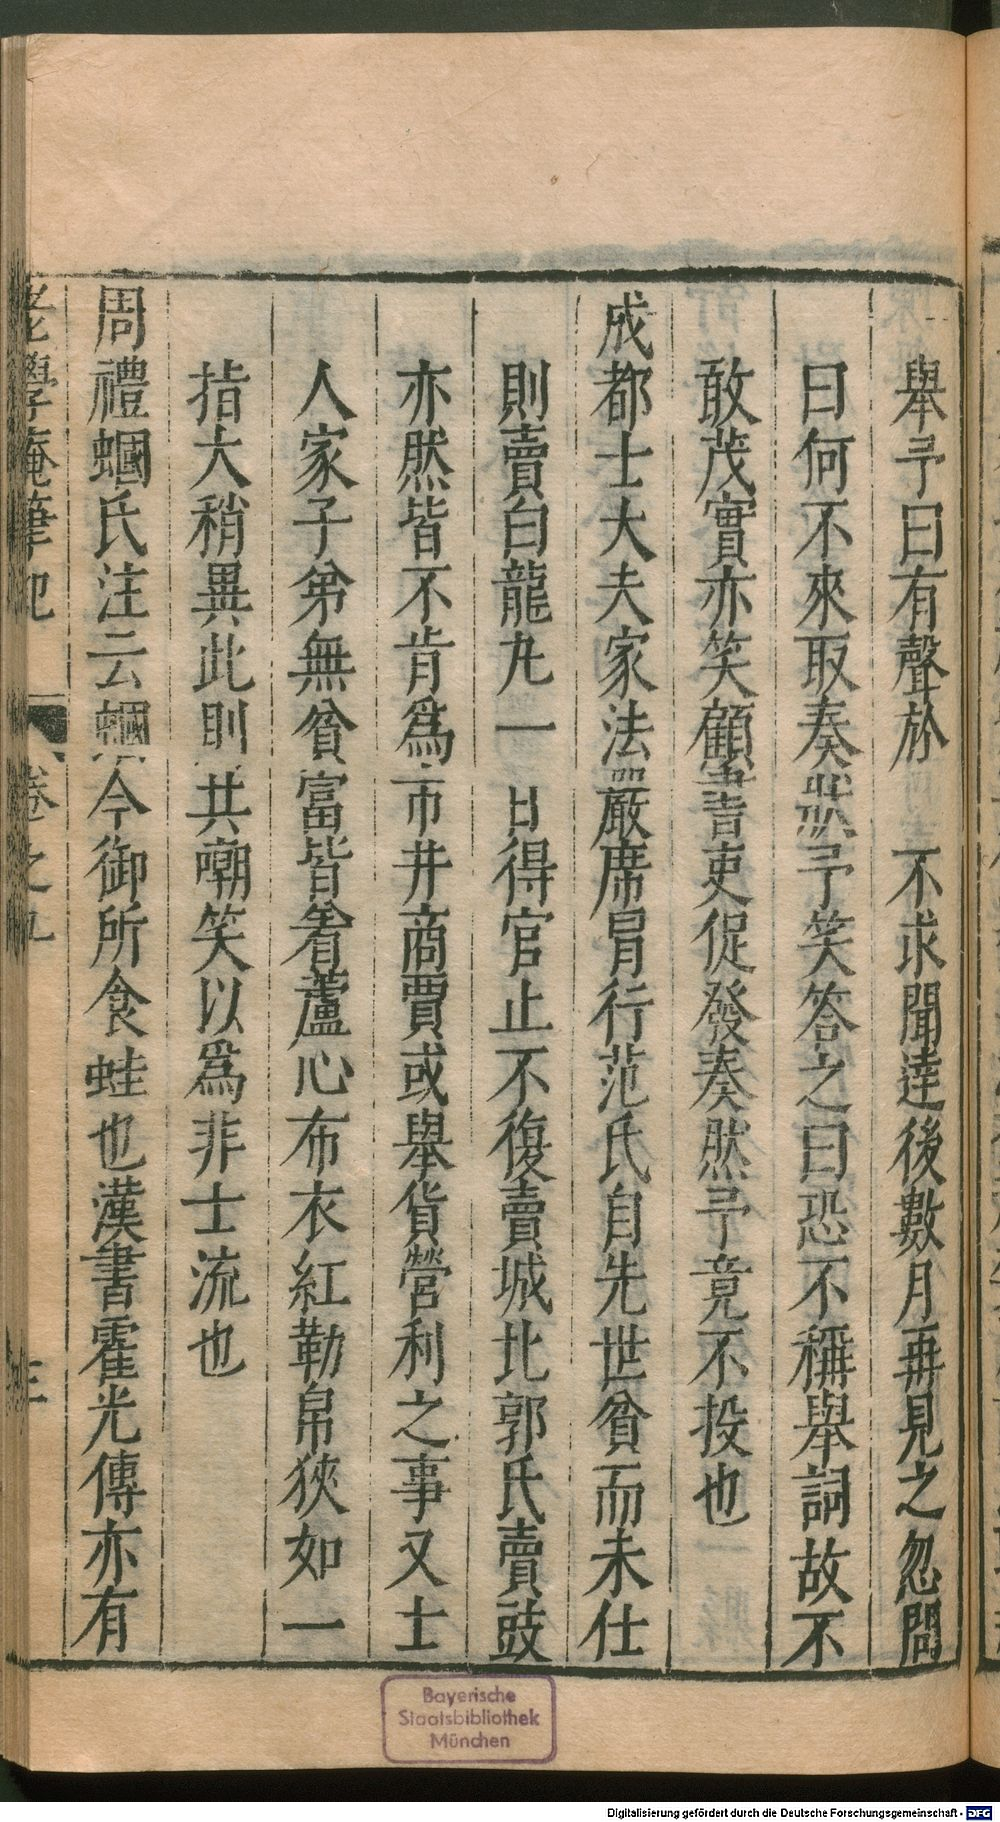 舉予曰有聲於　不求聞逹後數月再見之忽問
曰何不來取奏狀予笑答之曰恐不稱舉詞故不
敢茂實亦笑顧書吏促發奏然予竟不投也
成都士大夫家法嚴席帽行范氏自先世貧而未仕
則賣白龍丸一日得官止不復賣城北郭氏賣豉
亦然皆不肯爲市井商賈或舉貨營利之事又士
人家子弟無貧富皆着蘆心布衣紅勒帛狹如一
指大稍異此則共嘲笑以爲非士流也
周禮蟈氏注云蟈今御所食蛙也漢書霍光傳亦有
老學庵筆記　卷之九　三
Bayerische
Staatsbibliothek
München
Digitalisierung gefördert durch die Deutsche Forschungsgemeinschaft - DFG